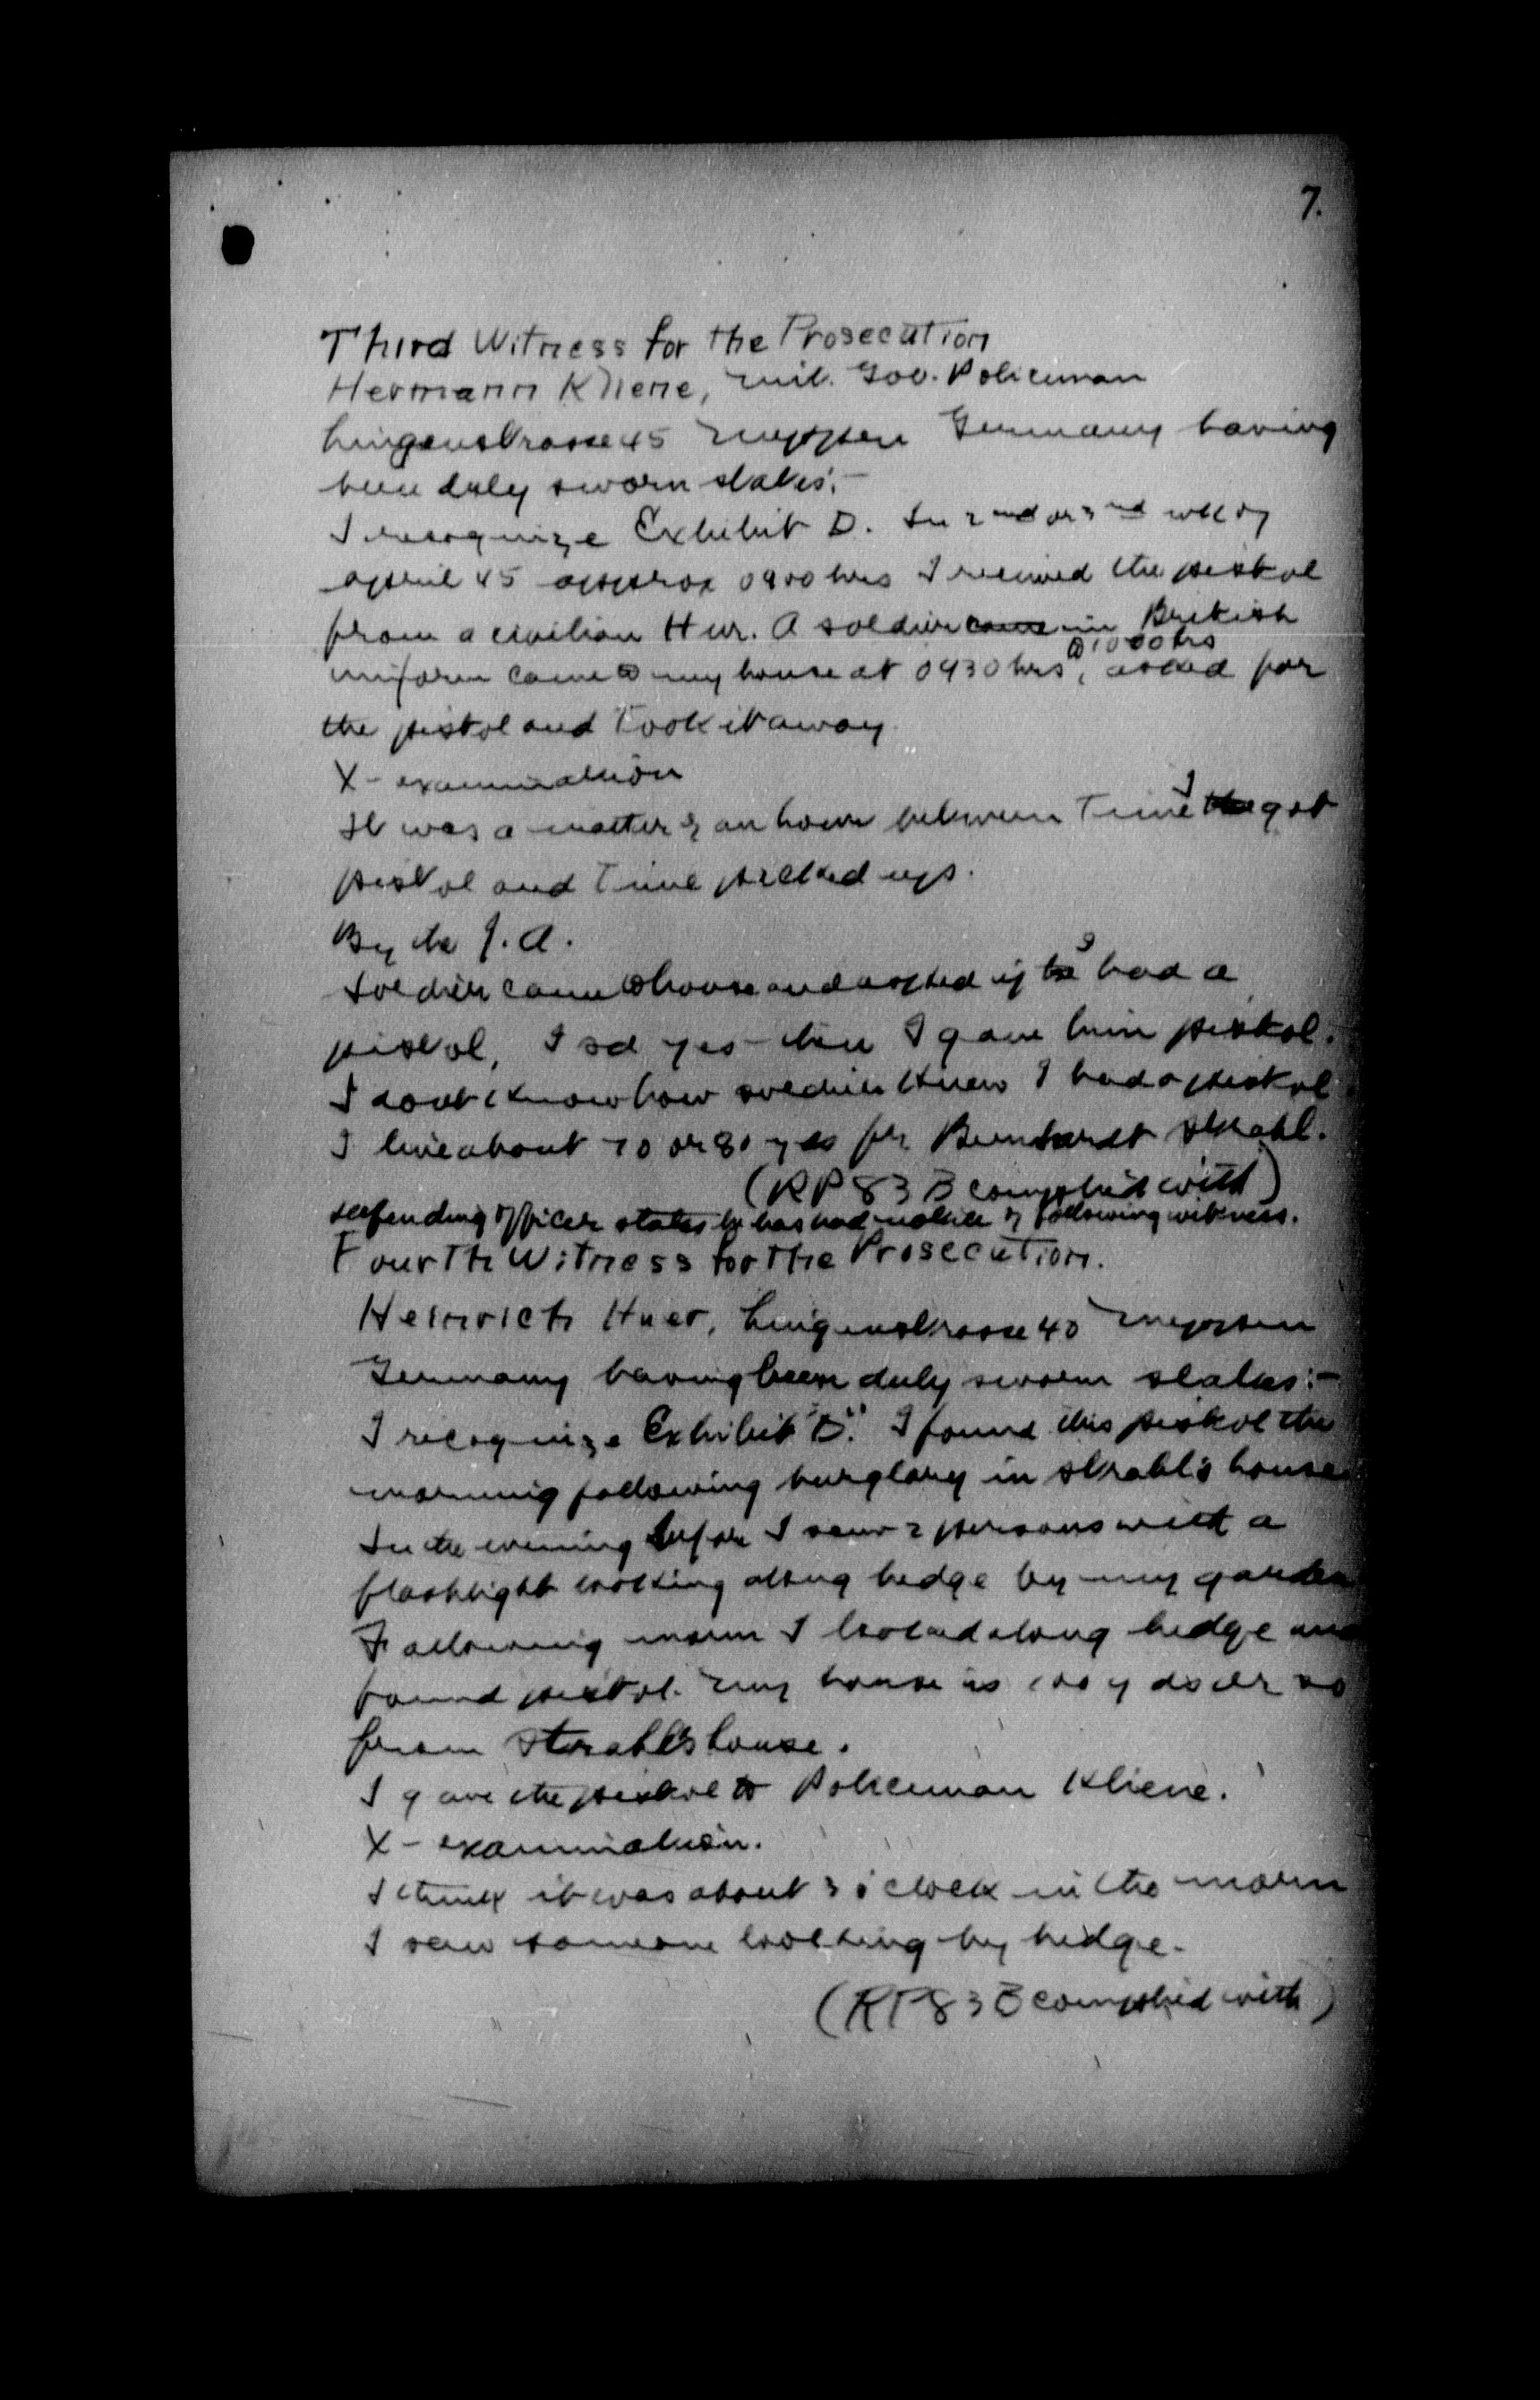 7.
Third Witness for the Prosecution
Hermann Kliene, Mil. Gov. Policeman
Lingenstrasse 45 Meppen Germany having
been duly sworn states:-
I recognize Exhibit D. In 2nd or 3rd wk of
april 45 approx 0900 hrs I received the pistol
from a civilian Huer. A soldier came in British
uniform came to my house at 0930 hrs, to 1000 hrs asked for
the pistol and took it away.
X-examination
It was a matter of an hour between Time I got
pistol and Time picked up.
By the J.A.
Soldier came to house and asked if I had a
pistol, I sd yes - then I gave him pistol.
I dont know how soldier knew I had a pistol
I live about 70 or 80 yds fr Bernhardt Strahl.
(RP 83 B complied with)
Defending officer states he has had notice of following witness.
Fourth Witness for the Prosecution.
Heinrich Huer, Lingenstrasse 40 Meppen
Germany having been duly sworn states:-
I recognize Exhibit "D". I found this pistol the
morning following burglary in Strahl's house
In the evening before I saw 2 persons with a
flashlight looking along hedge by my garden
Following morn I looked along hedge and
found pistol. My house is 100 yds or so
from Strahl's house.
I gave the pistol to Policeman Kliene.
X-examination.
I think it was about 3 o'clock in the morn
I saw someone looking by hedge.
(RP 83 B complied with)